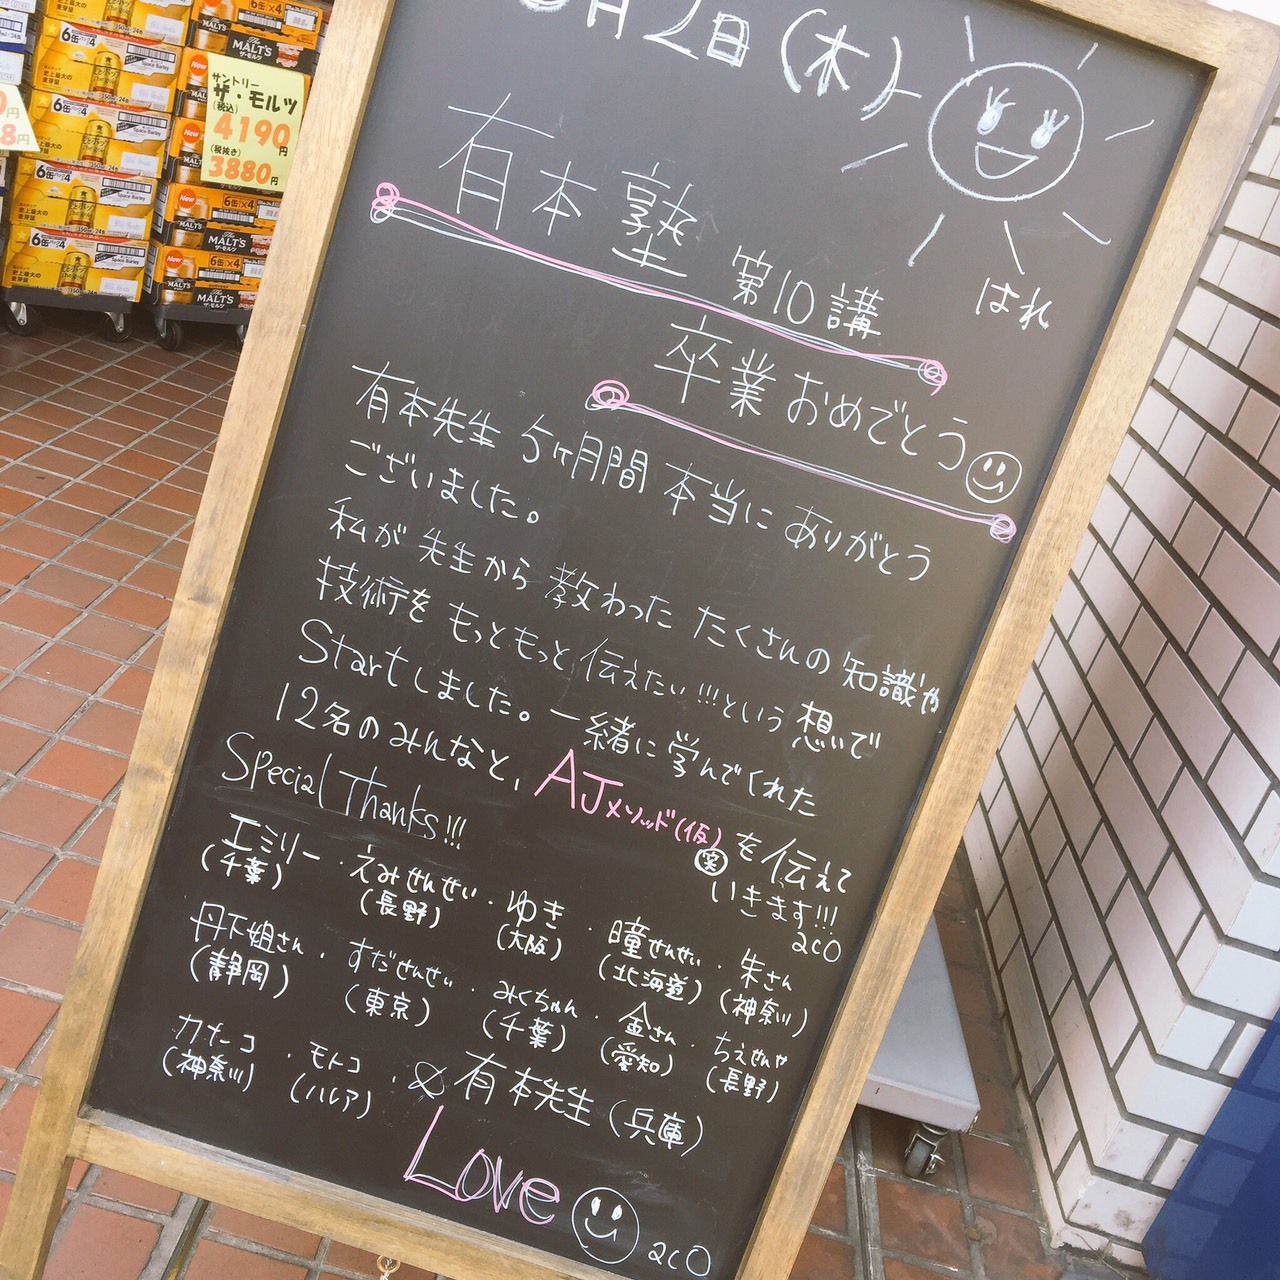 月2日(木)
はれ
有本塾 第10講
卒業おめでとう
有本先生 5ヶ月間 本当に ありがとう
ございました。
私が 先生から 教わった たくさんの 知識や
技術を もっともっと 伝えたい!!!という 想いで
Startしました。一緒に 学んでくれた
12名の みんなと, AJメソッド(仮)を 伝えて
笑
いきます!!!
aco
Special Thanks!!!
エミリー・えみせんせい・ゆき・瞳せんせい・朱さん
(千葉) (長野) (大阪) (北海道) (神奈川)
丹下姐さん・すだせんせい・みくちゃん・金さん・ちえせんせ
(静岡) (東京) (千葉) (愛知) (長野)
カナーコ・モトコ・& 有本先生 (兵庫)
(神奈川) (ハルア)
Love
aco
サントリー
ザ・モルツ
(税込)
4190円
(税抜き)
3880円
The MALT'S
ザ・モルツ
New
6缶×4
MALT'S
6缶パック4
Space Barley
史上最大の
麦芽量